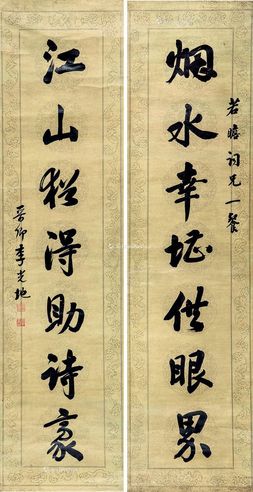 若瞻詞兄一粲
烟水幸堪供眼界
江山猶得助詩豪
晉卿李光地